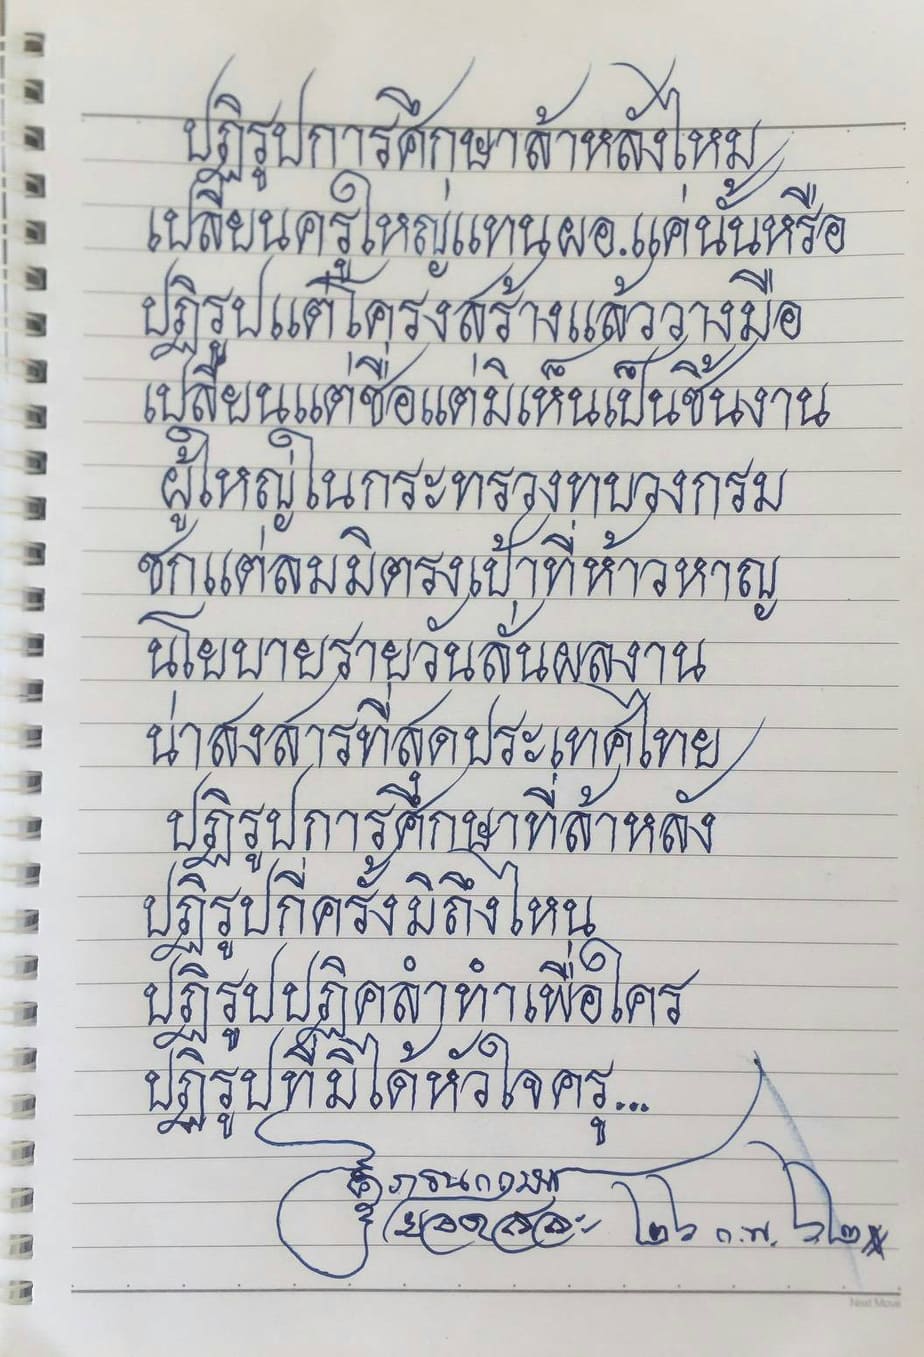 ปฏิรูปการศึกษาล้าหลังไหม
เปลี่ยนครูใหญ่แทนผอ.แค่นั้นหรือ
ปฏิรูปแต่โครงสร้างแล้ววางมือ
เปลี่ยนแต่ชื่อแต่มิเห็นเป็นชิ้นงาน
ผู้ใหญ่ในกระทรวงทบวงกรม
ชกแต่ลมมิตรงเป้าที่ห้าวหาญ
นโยบายรายวันลั่นผลงาน
น่าสงสารที่สุดประเทศไทย
ปฏิรูปการศึกษาที่ล้าหลัง
ปฏิรูปกี่ครั้งมิถึงไหน
ปฏิรูปปฏิคลำทำเพื่อใคร
ปฏิรูปที่มิได้หัวใจครู...
ก.พ. ๖๒
Next Move